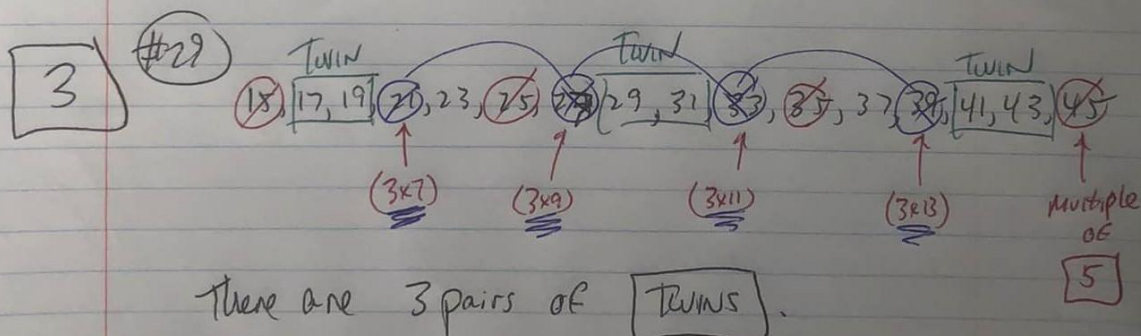 3 #29 TWIN TWIN TWIN
15, 17, 19, 21, 23, 25, 27, 29, 31, 33, 35, 37, 39, 41, 43, 45
(3x7) (3x9) (3x11) (3x13) Multiple
of
5
There are 3 pairs of TWINS.